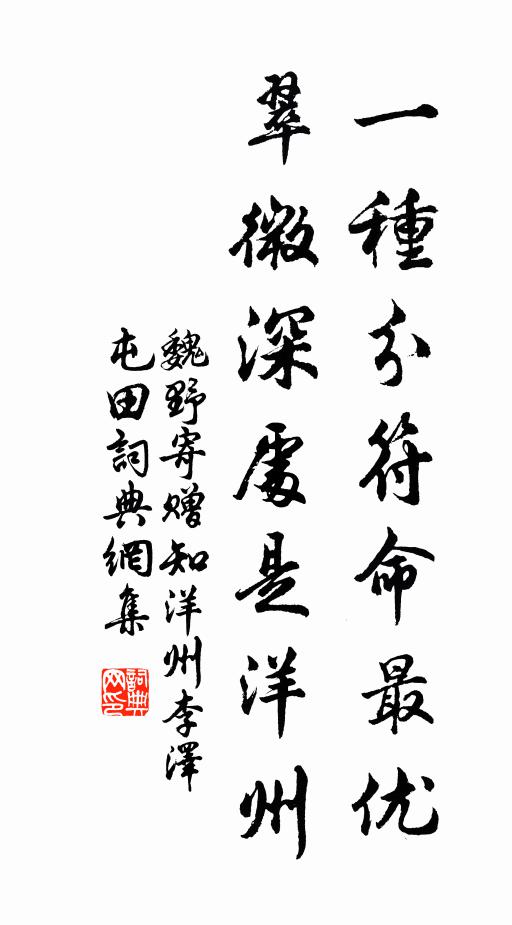 一種分符命最优
翠微深處是洋州
魏野寄赠知洋州李澤
屯田詞典網集
詞典网印